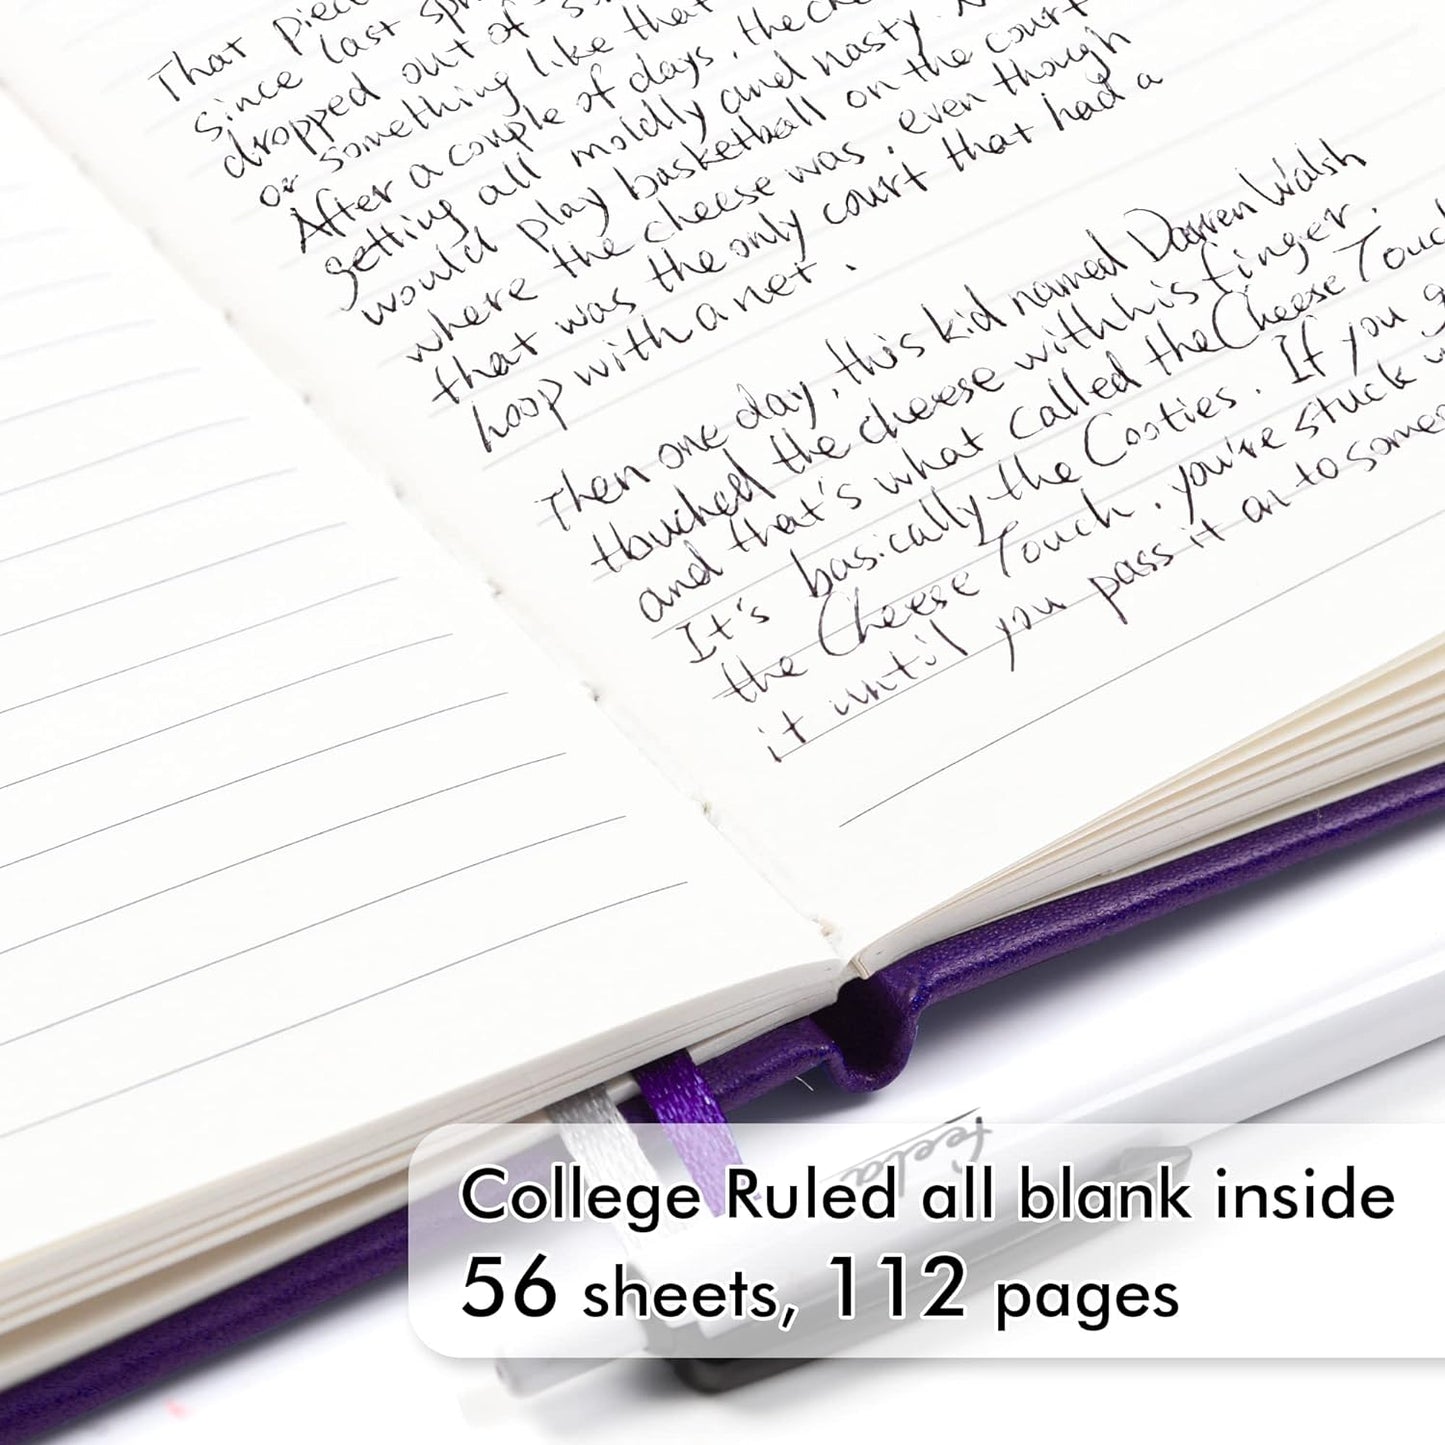 That piec
since last spr
dropped out of s
or something like that
After a couple of days, the che
getting all moldly and nasty.
would play basketball on the court
where the cheese was, even though
that was the only court that had a
hoop with a net.
Then one day, this kid named Darren Walsh
thouched the cheese with his finger.
and that's what called the Cheese Touc
It's basically the Cooties. If you g
the Cheese Touch, you're stuck w
it until you pass it on to someo
feela
College Ruled all blank inside
56 sheets, 112 pages